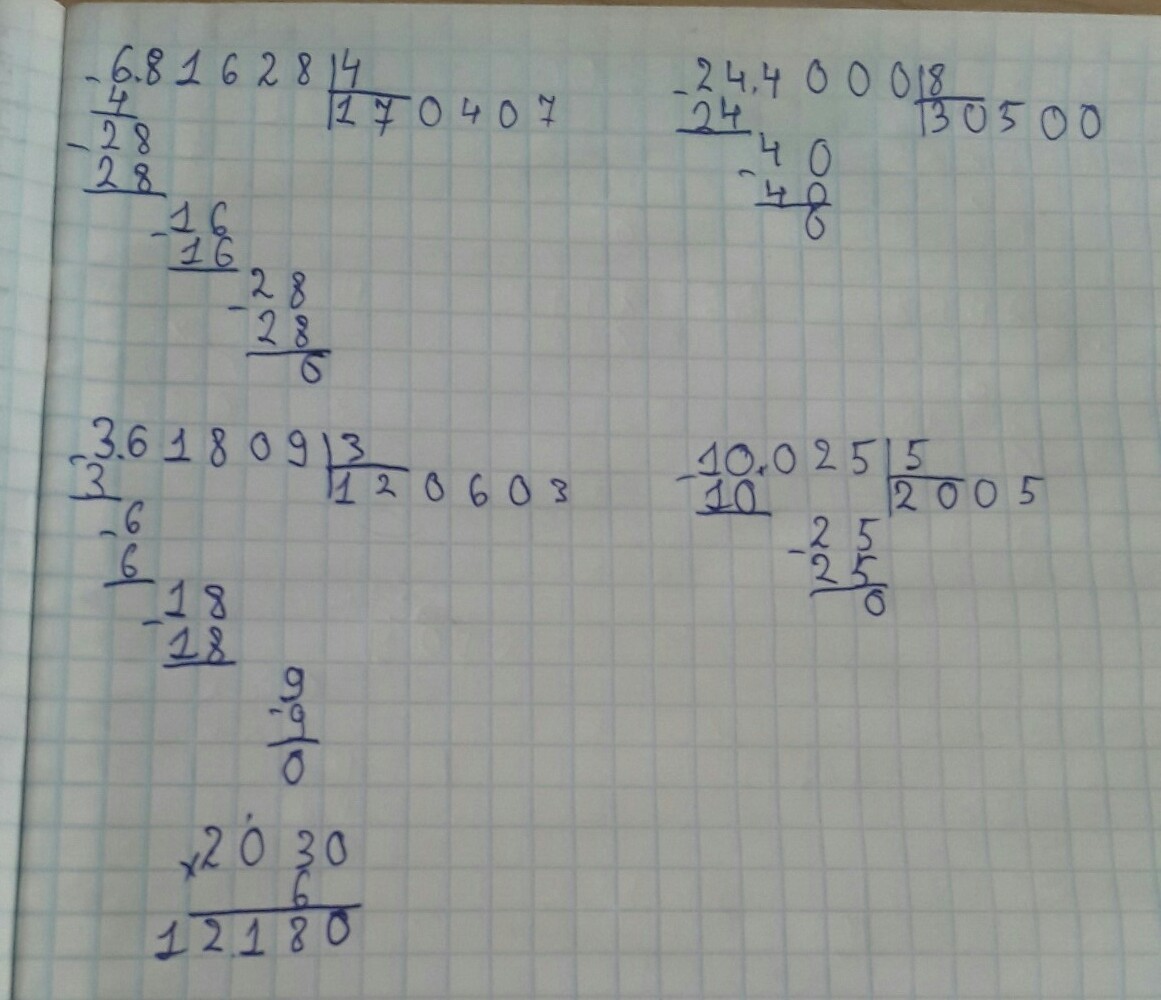 - 6.81628 | 4
4 | 170407
- 28
28
- 16
16
- 28
28
0
- 24.4000 | 8
24 | 30500
- 40
40
0
- 3.61809 | 3
3 | 120603
- 6
6
- 18
18
9
- 9
0
- 10.025 | 5
10 | 2005
- 25
25
0
x 2030
6
12180